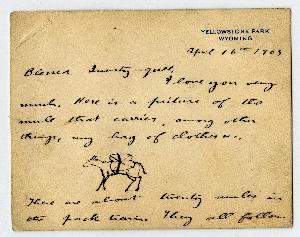 YELLOWSTONE PARK
WYOMING
April 16th 1903
Blessed Quenty-quee,
I love you very
much. Here is a picture of the
mule that carries, among other
things, my bag of clothes.
There are about twenty mules in
the pack train. They all follow